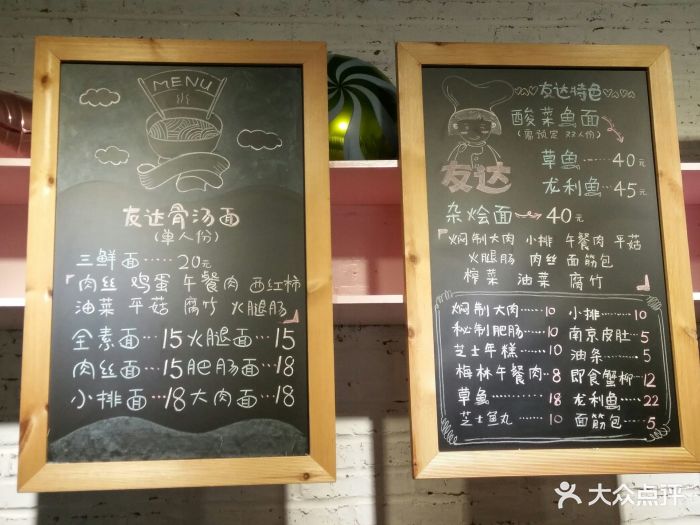 MENU
友达骨汤面
(单人份)
三鲜面·····20元
「肉丝 鸡蛋 午餐肉 西红柿
油菜 平菇 腐竹 火腿肠」
全素面···15 火腿面···15
肉丝面···15 肥肠面···18
小排面···18 大肉面···18
友达特色
酸菜鱼面
(需预定 双人份)
草鱼·····40元
龙利鱼···45元
友达
杂烩面 40元
「焖制大肉 小排 午餐肉 平菇
火腿肠 肉丝 面筋包
榨菜 油菜 腐竹」
焖制大肉······10 小排······10
秘制肥肠······10 南京皮肚···5
芝士年糕······10 油条······5
梅林午餐肉···8 即食蟹柳···12
草鱼······18 龙利鱼······22
芝士鱼丸······10 面筋包······5
大众点评